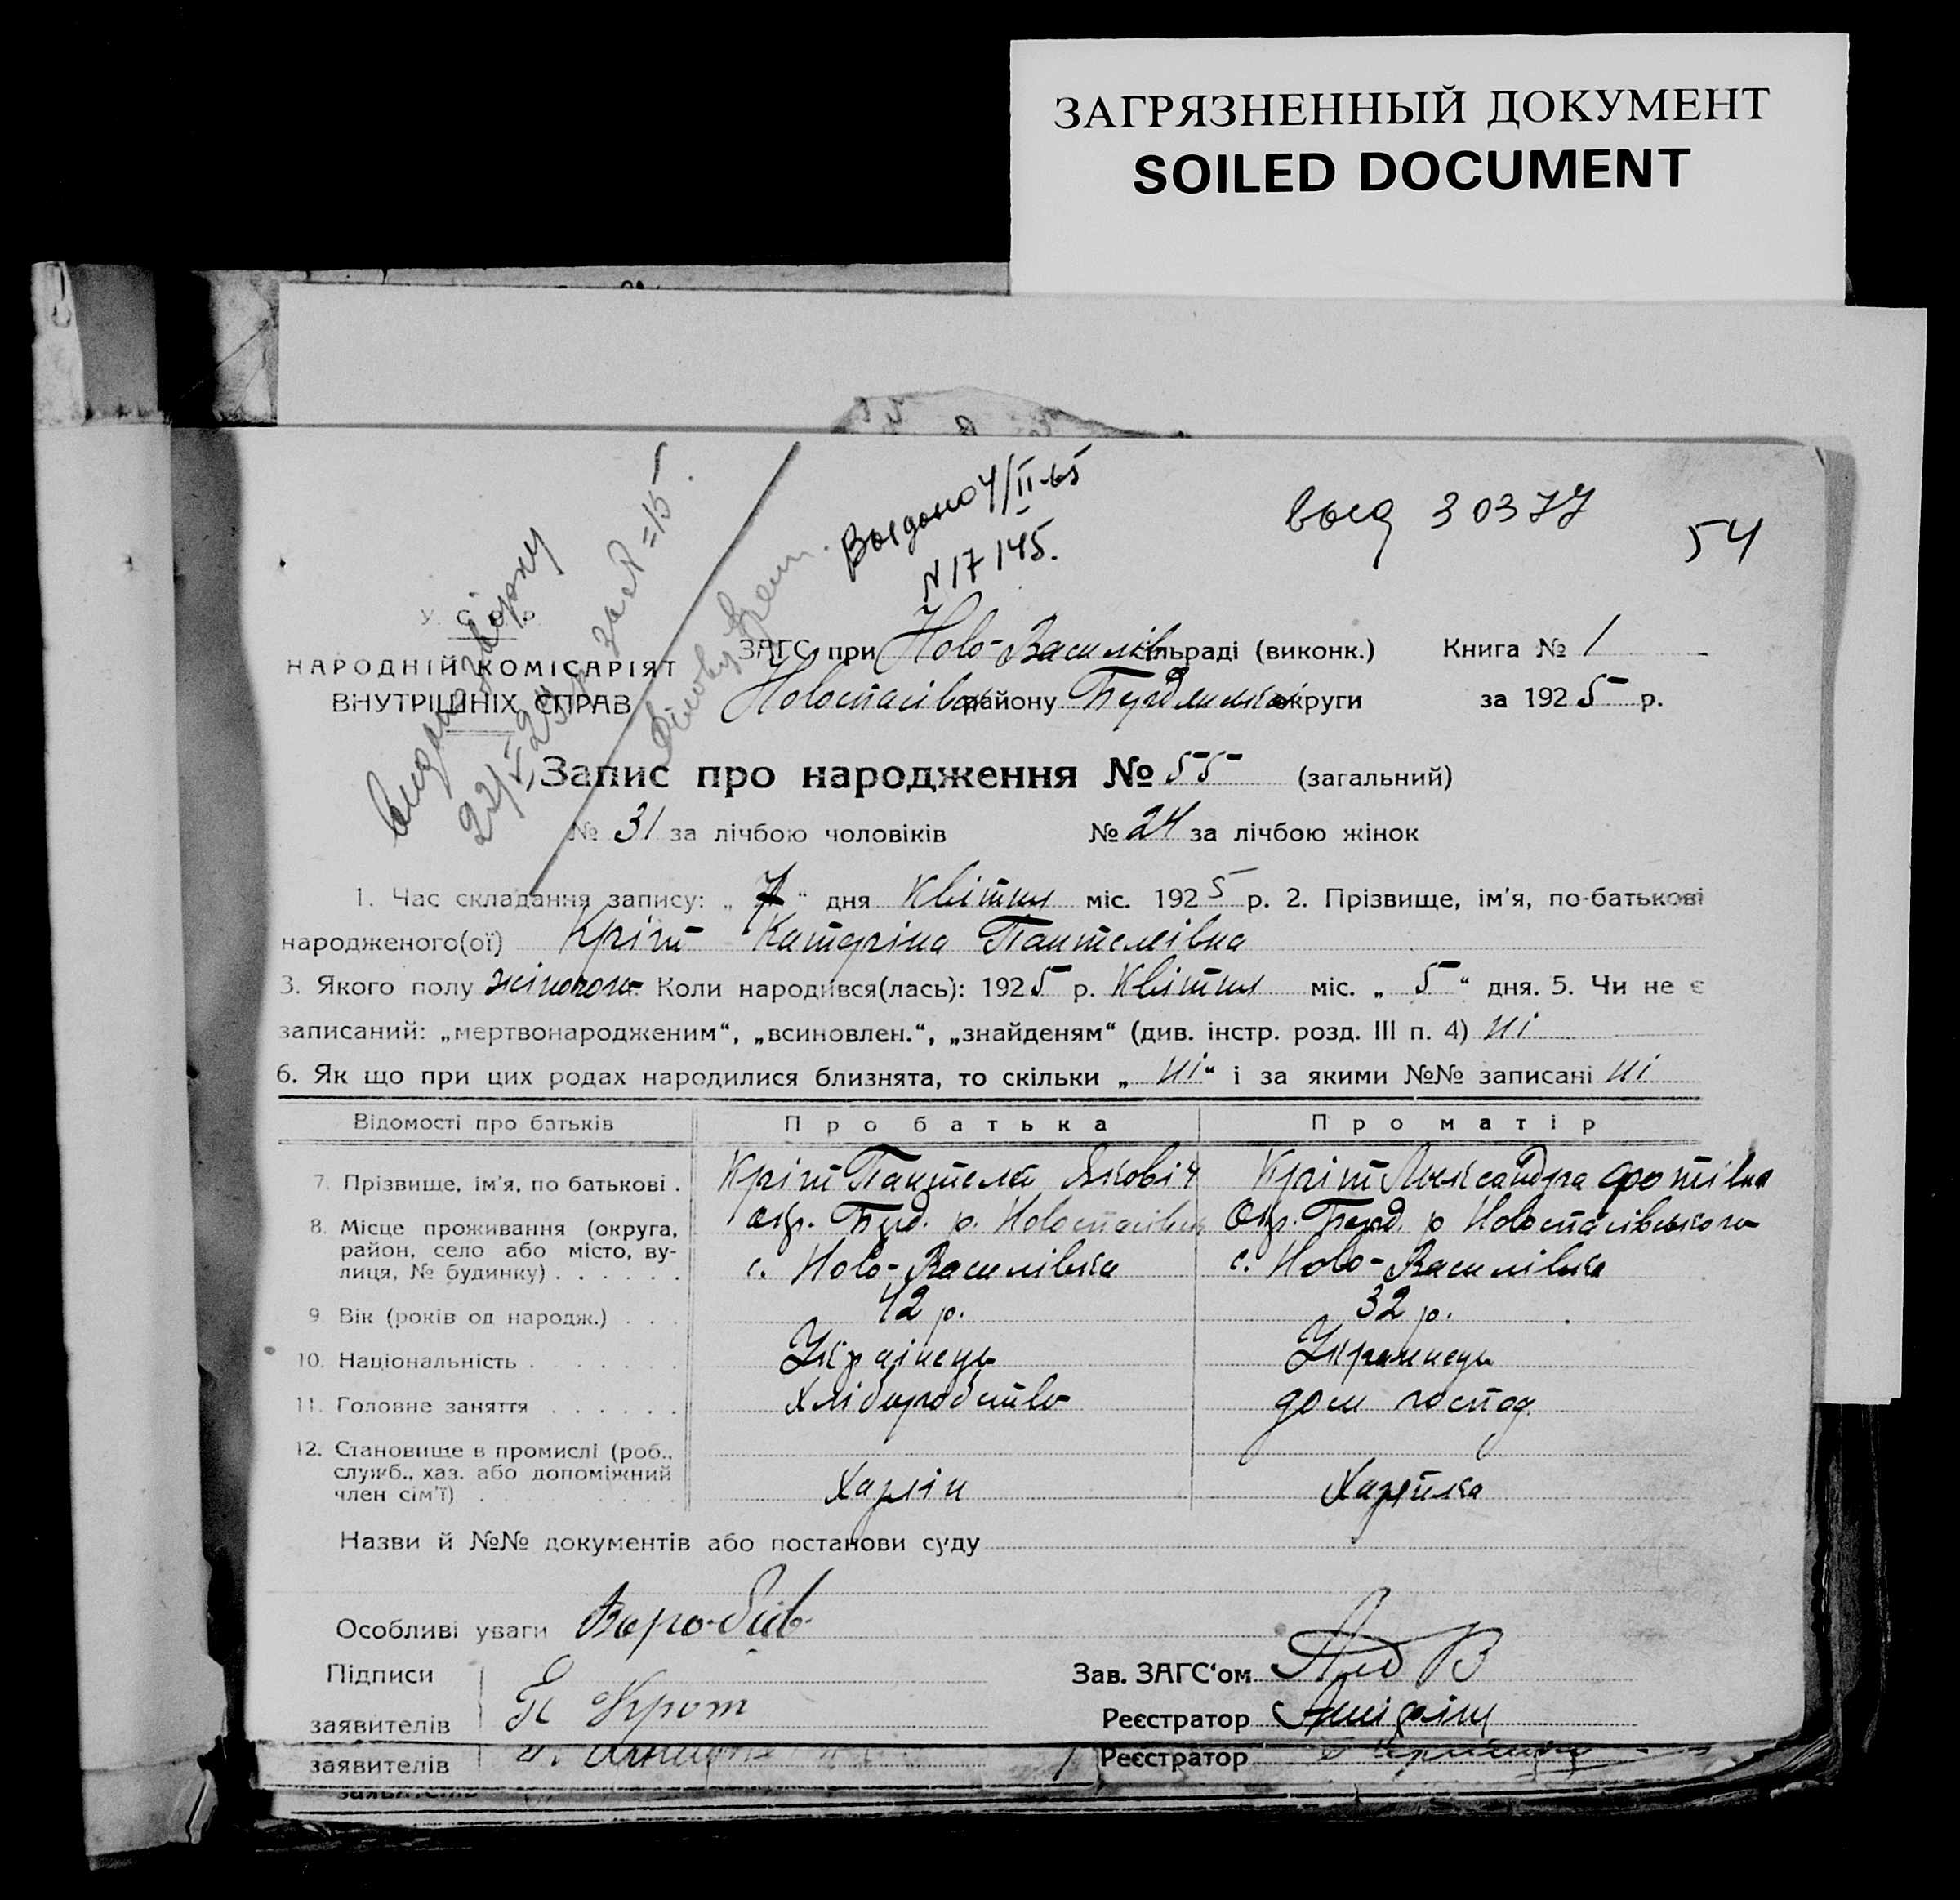 ЗАГРЯЗНЕННЫЙ ДОКУМЕНТ
SOILED DOCUMENT
Видано
Выдано 4/II-65
N 17145.
выд 30377
54
У. С. Р. Р.
НАРОДНІЙ КОМІСАРІЯТ
ВНУТРІШНІХ СПРАВ
ЗАГС при Ново-Василів сільраді (виконк.) Книга № 1
Новоспасівськ району округи за 1925 р.
Запис про народження № 55 (загальний)
№ 31 за лічбою чоловіків № 24 за лічбою жінок
1. Час складання запису: „ 7 “ дня Квітня міс. 1925 р. 2. Прізвище, ім'я, по-батькові
народженого(ої) Кріт Катеріна Пантелеівна
3. Якого полу жіночого Коли народився(лась): 1925 р. Квітня міс. „ 5 “ дня. 5. Чи не є
записаний: „мертвонародженим“, „всиновлен.“, „знайденям“ (див. інстр. розд. III п. 4) ні
6. Як що при цих родах народилися близнята, то скільки „ ні “ і за якими №№ записані ні
Відомості про батьків Про батька Про матір
7. Прізвище, ім'я, по батькові . Кріт Пантелей Якович Кріт Олександра Фотівна
8. Місце проживання (округа, район, село або місто, вулиця, № будинку) . . . . . .
окр. Берд. р. Новоспасівськ Окр. Берд. р Новоспасівського
с. Ново-Василівка с. Ново-Василівка
9. Вік (років од народж.) . . . 42 р. 32 р.
10. Національність . . . . . . Українець Українець
11. Головне заняття . . . . . . Хліборобство дом господ.
12. Становище в промислі (роб., служб., хаз. або допоміжний член сім'ї) . . . . . . . .
Назви й №№ документів або постанови суду
Особливі уваги
Підписи Зав. ЗАГС'ом
заявителів П Крот Реєстратор
заявителів Реєстратор
заявителів